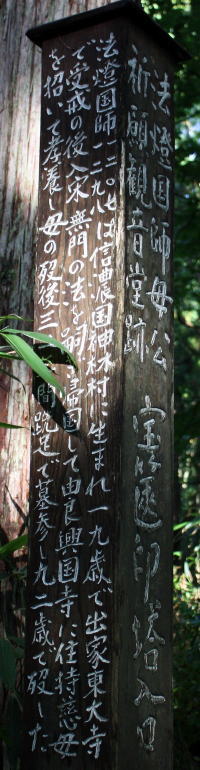 法燈国師母公
祈願観音堂跡
宝篋印塔入口
法燈国師一二〇七〜一二九八は信濃国神林村に生まれ一九歳で出家東大寺
で受戒の後入宋無門の法を嗣ぎ帰国して由良興国寺に住持慈母
を招いて孝養し母の歿後三 間跣足で墓参し九二歳で歿した